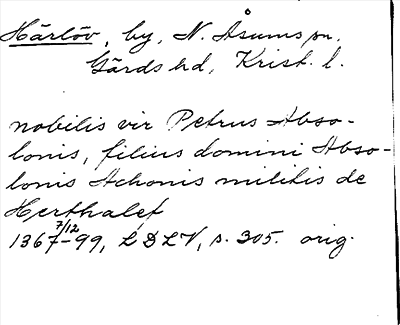 Härlöv, by, N. Åsums sn,
Gärds hd, Krist. l.
nobilis vir Petrus Abso-
lonis, filius domini Abso-
lonis Achonis militis de
Herthalef
1367 7/12 -99, LDLV, s. 305. orig.